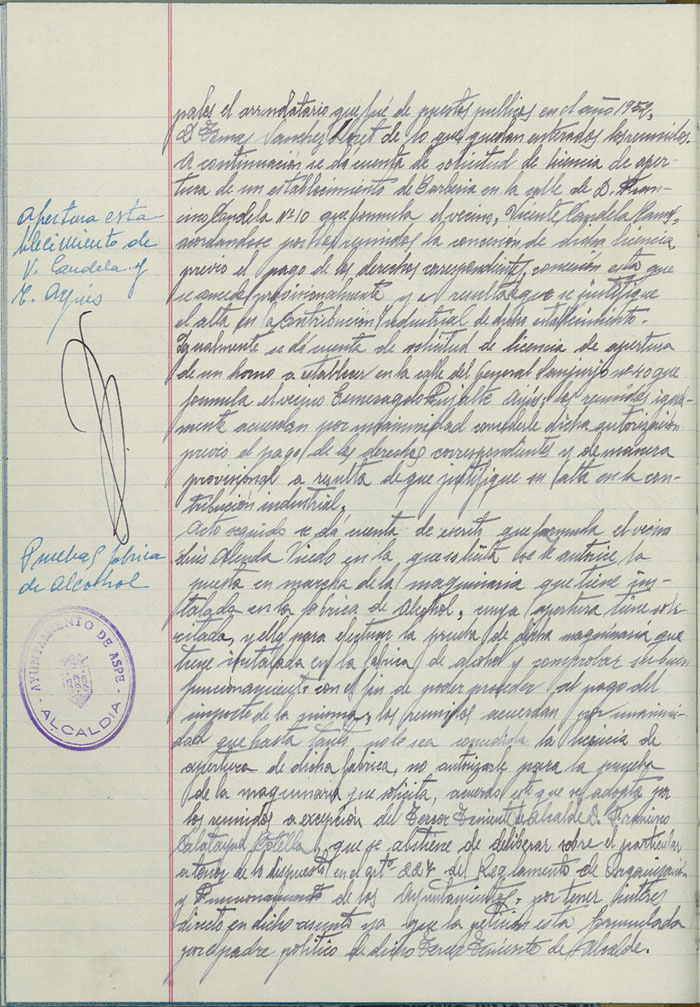 pales el arrendatario que fué de puestos publicos en el año 1952,
D. Tomas Sanchez de lo que quedan enterados los reunidos.
A continuacion se dá cuenta de solicitud de licencia de aper-
tura de un establecimiento de Barberia en la calle de D. Fran-
cisco Candela nº 10 que formula el vecino, Vicente Candela
acordandose por los reunidos la concesion de dicha licencia,
previo el pago de los derechos correspondiente, concesion esta que
se concede provisionalmente y a resultas que se justifique
el alta en la Contribucion Industrial de dicho establecimiento.
Igualmente se dá cuenta de solicitud de licencia de apertura
de un horno a establecer en la calle del General Sanjurjo nº 40 que
formula el vecino Ermerangelo Pujalte Ayús; los reunidos igual-
mente acuerdan por unanimidad concederle dicha autorización
previo el pago de los derechos correspondientes y de manera
provisional a resulta de que justifique su alta en la con-
tribución industrial.
Acto seguido se dá cuenta de escrito que formula el vecino
Luis Alenda en la que solicita se le autorice la
puesta en marcha de la maquinaria que tiene ins-
talada en la fabrica de Alcohol, cuya apertura tiene soli-
citada, y ello para efectuar la prueba de dicha maquinaria que
tiene instalada en la fabrica de alcohol y comprobar su buen
funcionamiento con el fin de poder proceder al pago del
importe de la misma, los reunidos acuerdan por unanimi-
dad que hasta tanto no le sea concedida la licencia de
apertura de dicha fabrica, no autorizarle para la prueba
de la maquinaria que solicita, acuerdo este que se adopta por
los reunidos a excepción del Tercer Teniente de Alcalde D.
Calatayud Botella, que se abstiene de deliberar sobre el particular
a tenor de lo dispuesto en el artº 227 del Reglamento de Organización
y Funcionamiento de los Ayuntamientos, por tener interes
directo en dicho asunto ya que la peticion esta formulada
por el padre politico de dicho Tercer Teniente de Alcalde.
Apertura esta-
blecimiento de
V. Candela y
E. Ayús
Pruebas fabrica
de Alcohol
AYUNTAMIENTO DE ASPE
- ALCALDIA -